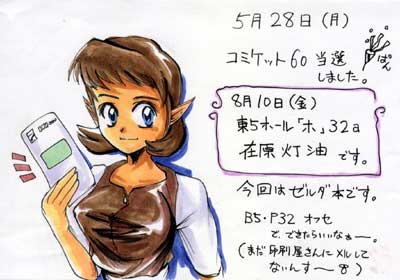 5月28日(月)
コミケット60 当選
しました。
ぱん
8月10日(金)
東5ホール「ホ」32a
在原灯油です。
今回はゼルダ本です。
B5・P32 オフセ
で、できたらいいなぁー。
(まだ印刷屋さんにメルして
ないんすー)